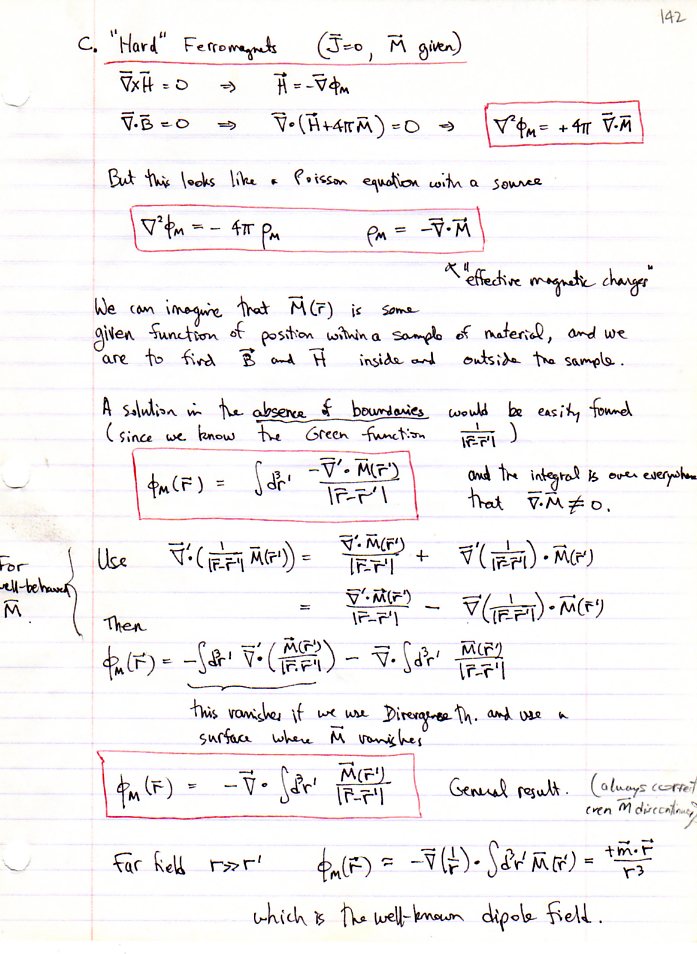 142
C. "Hard" Ferromagnets (J⃗=0, M⃗ given)
∇⃗×H⃗ = 0 ⇒ H⃗ = -∇⃗φ_M
∇⃗·B⃗ = 0 ⇒ ∇⃗·(H⃗+4πM⃗) = 0 ⇒ ∇²φ_M = +4π ∇⃗·M⃗
But this looks like a Poisson equation with a source
∇²φ_M = -4π ρ_M ρ_M = -∇⃗·M⃗
"effective magnetic charges"
We can imagine that M⃗(r⃗) is some
given function of position within a sample of material, and we
are to find B⃗ and H⃗ inside and outside the sample.
A solution in the absence of boundaries would be easily found
(since we know the Green function 1/|r⃗-r⃗'| )
φ_M(r⃗) = ∫d³r' -∇⃗'·M⃗(r⃗')/|r⃗-r⃗'| and the integral is over everywhere
that ∇⃗·M⃗ ≠ 0.
For
well-behaved
M⃗.
Use ∇⃗'·(1/|r⃗-r⃗'| M⃗(r⃗')) = ∇⃗'·M⃗(r⃗')/|r⃗-r⃗'| + ∇⃗'(1/|r⃗-r⃗'|)·M⃗(r⃗')
= ∇⃗'·M⃗(r⃗')/|r⃗-r⃗'| - ∇⃗(1/|r⃗-r⃗'|)·M⃗(r⃗')
Then
φ_M(r⃗) = -∫d³r' ∇⃗'·(M⃗(r⃗')/|r⃗-r⃗'|) - ∇⃗·∫d³r' M⃗(r⃗')/|r⃗-r⃗'|
this vanishes if we use Divergence Th. and use a
surface where M⃗ vanishes
φ_M(r⃗) = -∇⃗·∫d³r' M⃗(r⃗')/|r⃗-r⃗'| General result. (always correct
even M⃗ discontinuous)
Far field r>>r' φ_M(r⃗) ≈ -∇⃗(1/r)·∫d³r' M⃗(r⃗') = +m⃗·r⃗/r³
which is the well-known dipole field.